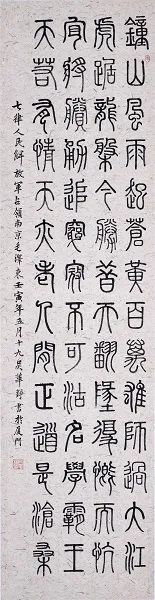 鐘山風雨起蒼黃百萬雄師過大江
虎踞龍盤今勝昔天翻地覆慨而慷
宜將賸勇追窮寇不可沽名學霸王
天若有情天亦老人間正道是滄桑
七律人民解放軍占領南京毛澤東壬寅年五月十九吳書於廈門